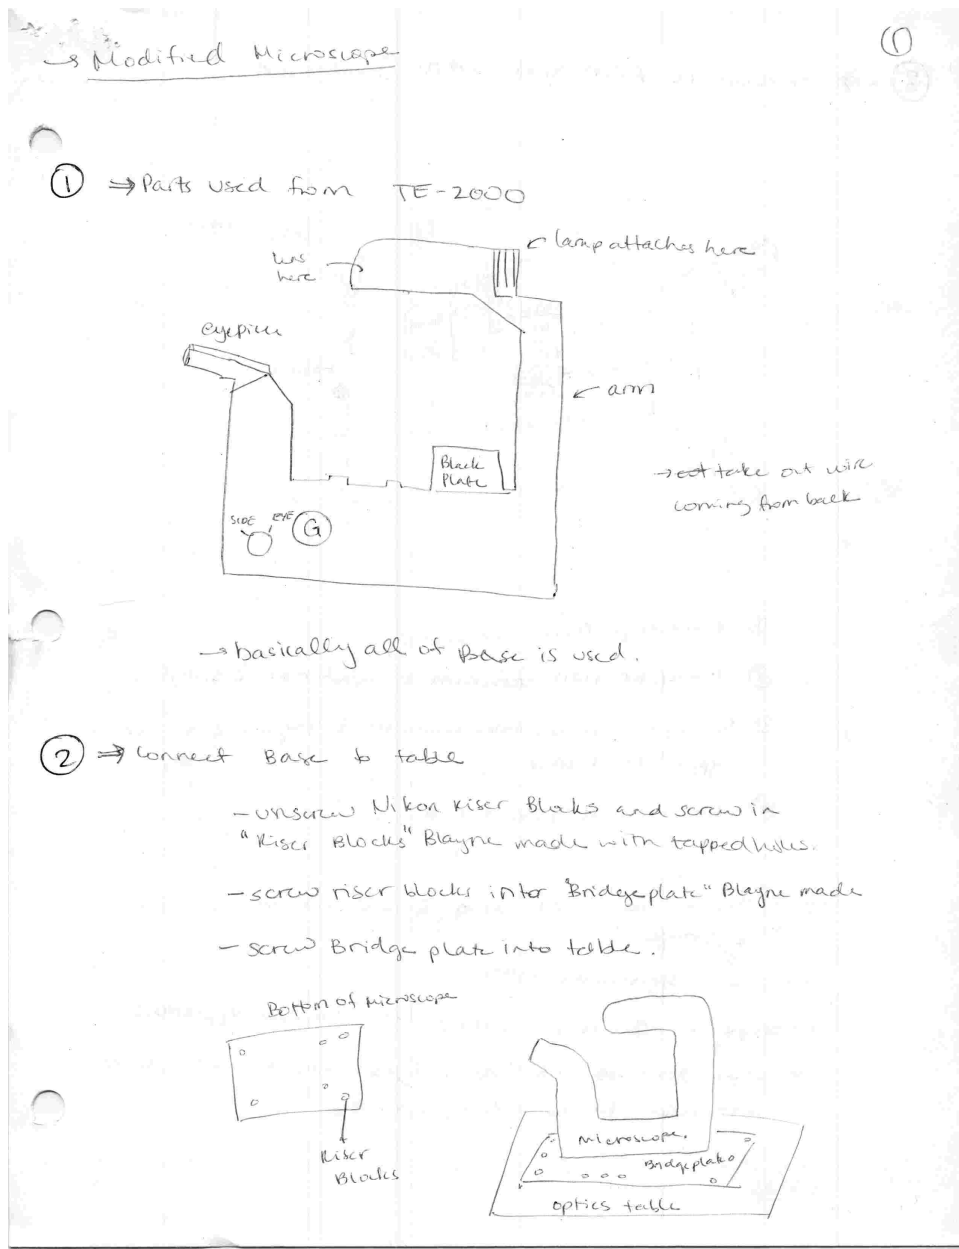 → Modified Microscope
①
① ⇒ Parts used from TE-2000
← lamp attaches here
lens
here
eyepiece
← arm
Black
Plate
→ take out wire
coming from back
SIDE EYE G
→ basically all of Base is used.
② ⇒ Connect Base to table
- unscrew Nikon Riser Blocks and screw in
"Riser Blocks" Blayne made with tapped holes.
- screw riser blocks into "Bridgeplate" Blayne made
- screw Bridge plate into table.
Bottom of Microscope
Riser
Blocks
Microscope.
Bridgeplate
optics table